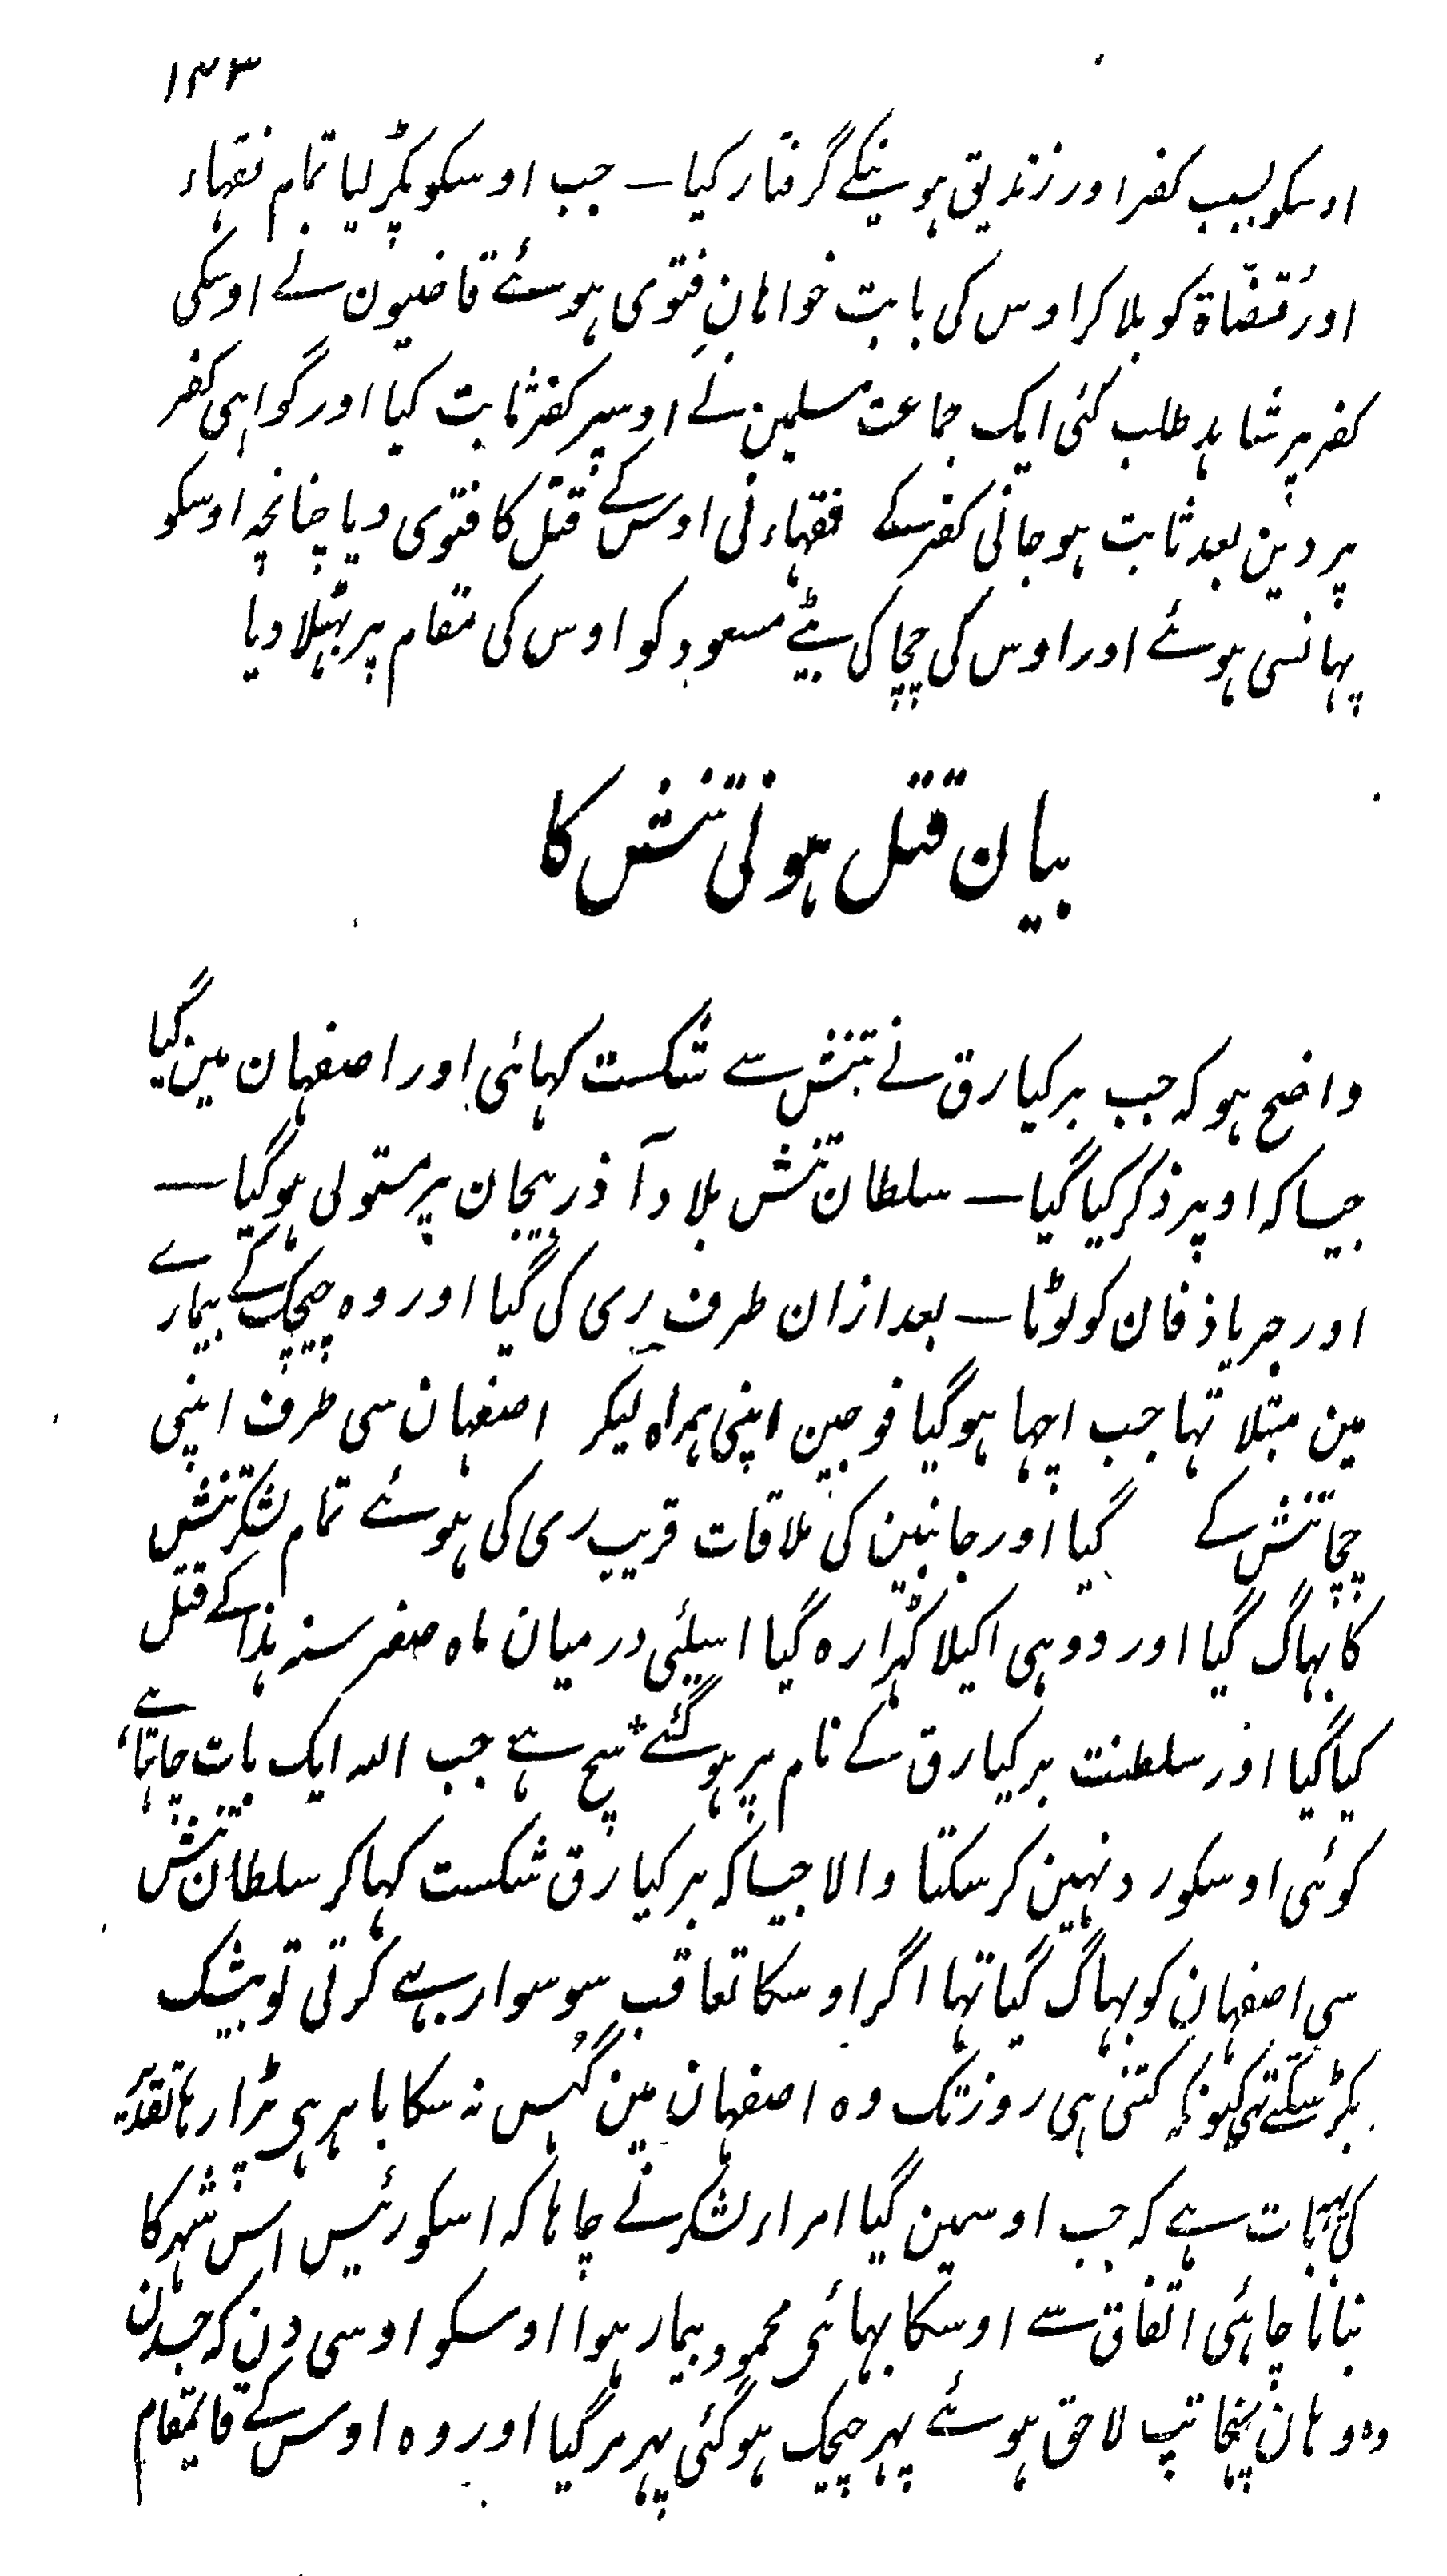 ۱۴۳
اوسکو بسبب کفر اور زندیق ہونیکے گرفتار کیا ـ جب اوسکو پکڑ لیا تمام فقہاء
اور قضاۃ کو بلا کر اوس کی بابت خواہان فتوی ہوئے قاضیون نے اوسکی
کفر پر شاہد طلب کئی ایک جماعت مسلمین نے اوسپر کفر ثابت کیا اور گواہی کفر
پر دین بعد ثابت ہو جانی کفر کے فقہاء نی اوس کے قتل کا فتوی دیا چنانچہ اوسکو
پہانسی ہوئے اور اوس کی چچا کی بیٹے مسعود کو اوس کی مقام پر بٹھلا دیا
بیان قتل ہونی تتش کا
واضح ہو کہ جب برکیارق نے تتش سے شکست کہائی اور اصفہان مین گیا
جیسا کہ اوپر ذکر کیا گیا ـ سلطان تتش بلاد آذریجان پر مستولی ہو گیا ـ
اور جرباذفان کو لوٹا ـ بعد ازان طرف ری کی گیا اور وہ چیچک کے بیمارے
مین مبتلا تہا جب اچہا ہو گیا فوجین اپنی ہمراہ لیکر اصفہان سی طرف اپنی
چچا تتش کے گیا اور جانبین کی ملاقات قریب ری کی ہوئے تمام لشکر تتش
کا بہاگ گیا اور دوہی اکیلا کہڑا رہ گیا اسیلئی درمیان ماہ صفر سنہ ہذا کے قتل
کیا گیا اور سلطنت برکیارق کے نام پر ہو گئے سچ ہے جب اللہ ایک بات چاہتا ہے
کوئی اوسکو رد نہین کر سکتا والا جیسا کہ برکیارق شکست کہا کر سلطان تتش
سی اصفہان کو بہاگ گیا تہا اگر اوسکا تعاقب سو سوار بہے کرتی تو بیشک
پکڑ سکتے تہی کیونکہ کتنی ہی روز تک وہ اصفہان مین گہس نہ سکا باہر ہی پڑا رہا تقدیر
کی یہہ بات ہے کہ جب اوسمین گیا امراء لشکر نے چاہا کہ اسکو رئیس اس شہر کا
بنانا چاہئی اتفاق سے اوسکا بہائی محمود بیمار ہوا اوسکو اوسی دن کہ جسدن
وہ وہان پہنچا تپ لاحق ہوئے پہر چیچک ہو گئی پہر مر گیا اور وہ اوس کے قایمقام